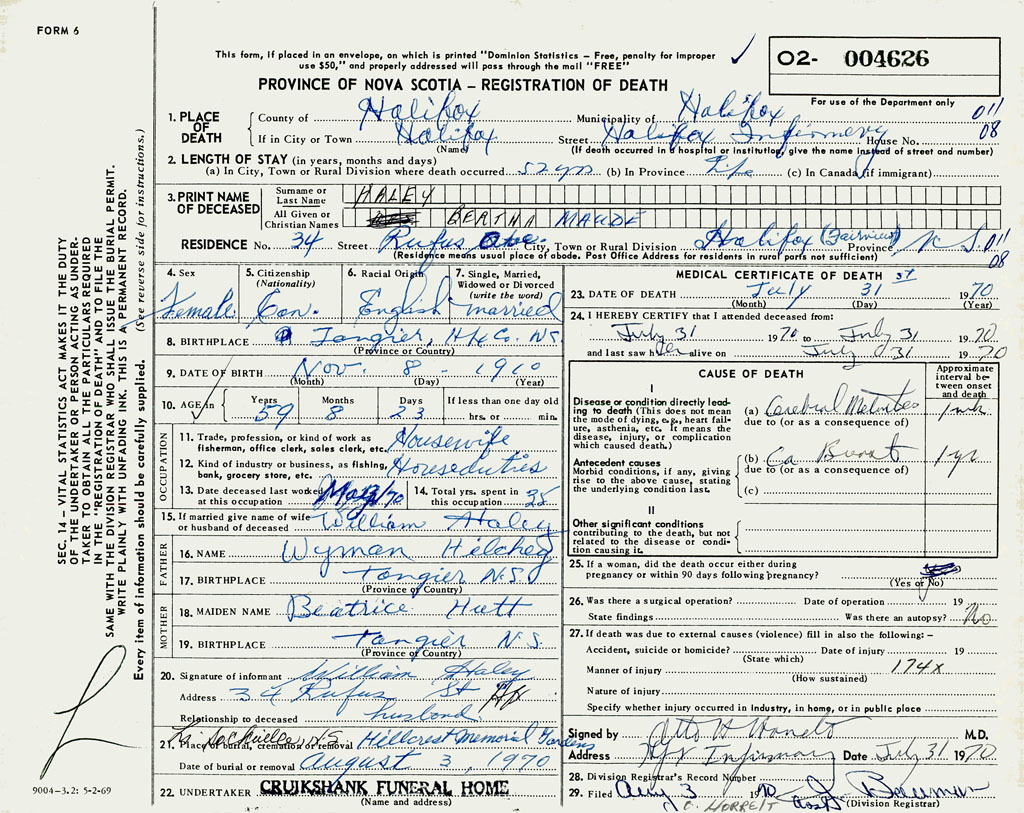 FORM 6
This form, if placed in an envelope, on which is printed "Dominion Statistics – Free, penalty for improper
use $50," and properly addressed will pass through the mail "FREE"
02- 004626
PROVINCE OF NOVA SCOTIA – REGISTRATION OF DEATH
For use of the Department only
1. PLACE OF DEATH
County of Halifax Municipality of Halifax 011
If in City or Town Halifax Street Halifax Infirmery House No. 08
(Name) (If death occurred in a hospital or institution, give the name instead of street and number)
2. LENGTH OF STAY (in years, months and days)
(a) In City, Town or Rural Division where death occurred 52 yrs (b) In Province Life (c) In Canada (if immigrant)
3. PRINT NAME OF DECEASED
Surname or Last Name HALEY
All Given or Christian Names BERTHA MAUDE
RESIDENCE No. 34 Street Rufus Ave. City, Town or Rural Division Halifax (Fairview) Province N.S. 011
(Residence means usual place of abode. Post Office Address for residents in rural parts not sufficient) 08
4. Sex Female
5. Citizenship (Nationality) Can.
6. Racial Origin English
7. Single, Married, Widowed or Divorced (write the word) married
8. BIRTHPLACE Tangier, Hfx Co. N.S.
(Province or Country)
9. DATE OF BIRTH Nov. 8 - 1910
(Month) (Day) (Year)
10. AGE in Years 59 Months 8 Days 23 If less than one day old hrs. or min.
OCCUPATION
11. Trade, profession, or kind of work as fisherman, office clerk, sales clerk, etc. Housewife
12. Kind of industry or business, as fishing, bank, grocery store, etc. Houseduties
13. Date deceased last worked at this occupation /70
14. Total yrs. spent in this occupation 35
15. If married give name of wife or husband of deceased William Haley
FATHER
16. NAME Wyman Hilchey
17. BIRTHPLACE Tangier N.S.
(Province or Country)
MOTHER
18. MAIDEN NAME Beatrice Hutt
19. BIRTHPLACE Tangier N.S.
(Province or Country)
20. Signature of informant William Haley
Address 34 Rufus St Hfx
Relationship to deceased husband
21. Place of burial, cremation or removal Hillcrest Memorial Gardens
Sackville, N.S.
Date of burial or removal August 3, 1970
22. UNDERTAKER CRUIKSHANK FUNERAL HOME
(Name and address)
MEDICAL CERTIFICATE OF DEATH
23. DATE OF DEATH July 31st 1970
(Month) (Day) (Year)
24. I HEREBY CERTIFY that I attended deceased from:
July 31 1970 to July 31 1970
and last saw her alive on July 31 1970
CAUSE OF DEATH
Approximate interval between onset and death
I
Disease or condition directly leading to death (This does not mean the mode of dying, e.g., heart failure, asthenia, etc. It means the disease, injury, or complication which caused death.)
(a) Cerebral 1 wk
due to (or as a consequence of)
Antecedent causes
Morbid conditions, if any, giving rise to the above cause, stating the underlying condition last.
(b) Ca Breast 1 yr
due to (or as a consequence of)
(c)
II
Other significant conditions contributing to the death, but not related to the disease or condition causing it.
25. If a woman, did the death occur either during pregnancy or within 90 days following pregnancy?
(Yes or No)
26. Was there a surgical operation? Date of operation 19
State findings Was there an autopsy? No
27. If death was due to external causes (violence) fill in also the following: –
Accident, suicide or homicide? Date of injury 19
(State which)
Manner of injury 174x
(How sustained)
Nature of injury
Specify whether injury occurred in industry, in home, or in public place
Signed by M.D.
Address Hfx Infirmary Date July 31 1970
28. Division Registrar's Record Number
29. Filed Aug 3 1970
(Division Registrar)
SEC. 14 – VITAL STATISTICS ACT MAKES IT THE DUTY
OF THE UNDERTAKER OR PERSON ACTING AS UNDERTAKER TO OBTAIN ALL THE PARTICULARS REQUIRED
IN THE "REGISTRATION OF DEATH" AND TO FILE THE
SAME WITH THE DIVISION REGISTRAR WHO SHALL ISSUE THE BURIAL PERMIT.
WRITE PLAINLY WITH UNFADING INK. THIS IS A PERMANENT RECORD.
Every item of information should be carefully supplied. (See reverse side for instructions.)
9004–3.2: 5-2-69